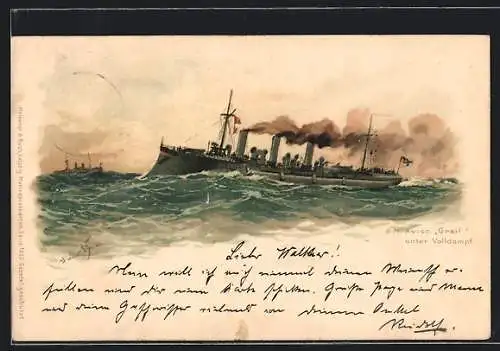 S.M. Aviso „Greif"
unter Volldampf
Lieber Walther!
Nun will ich auch einmal deinen Wunsch er-
füllen und dir eine Karte schicken. Grüße Papa und Mama
und deine Geschwister vielmals von deinem Onkel
Rudolf.